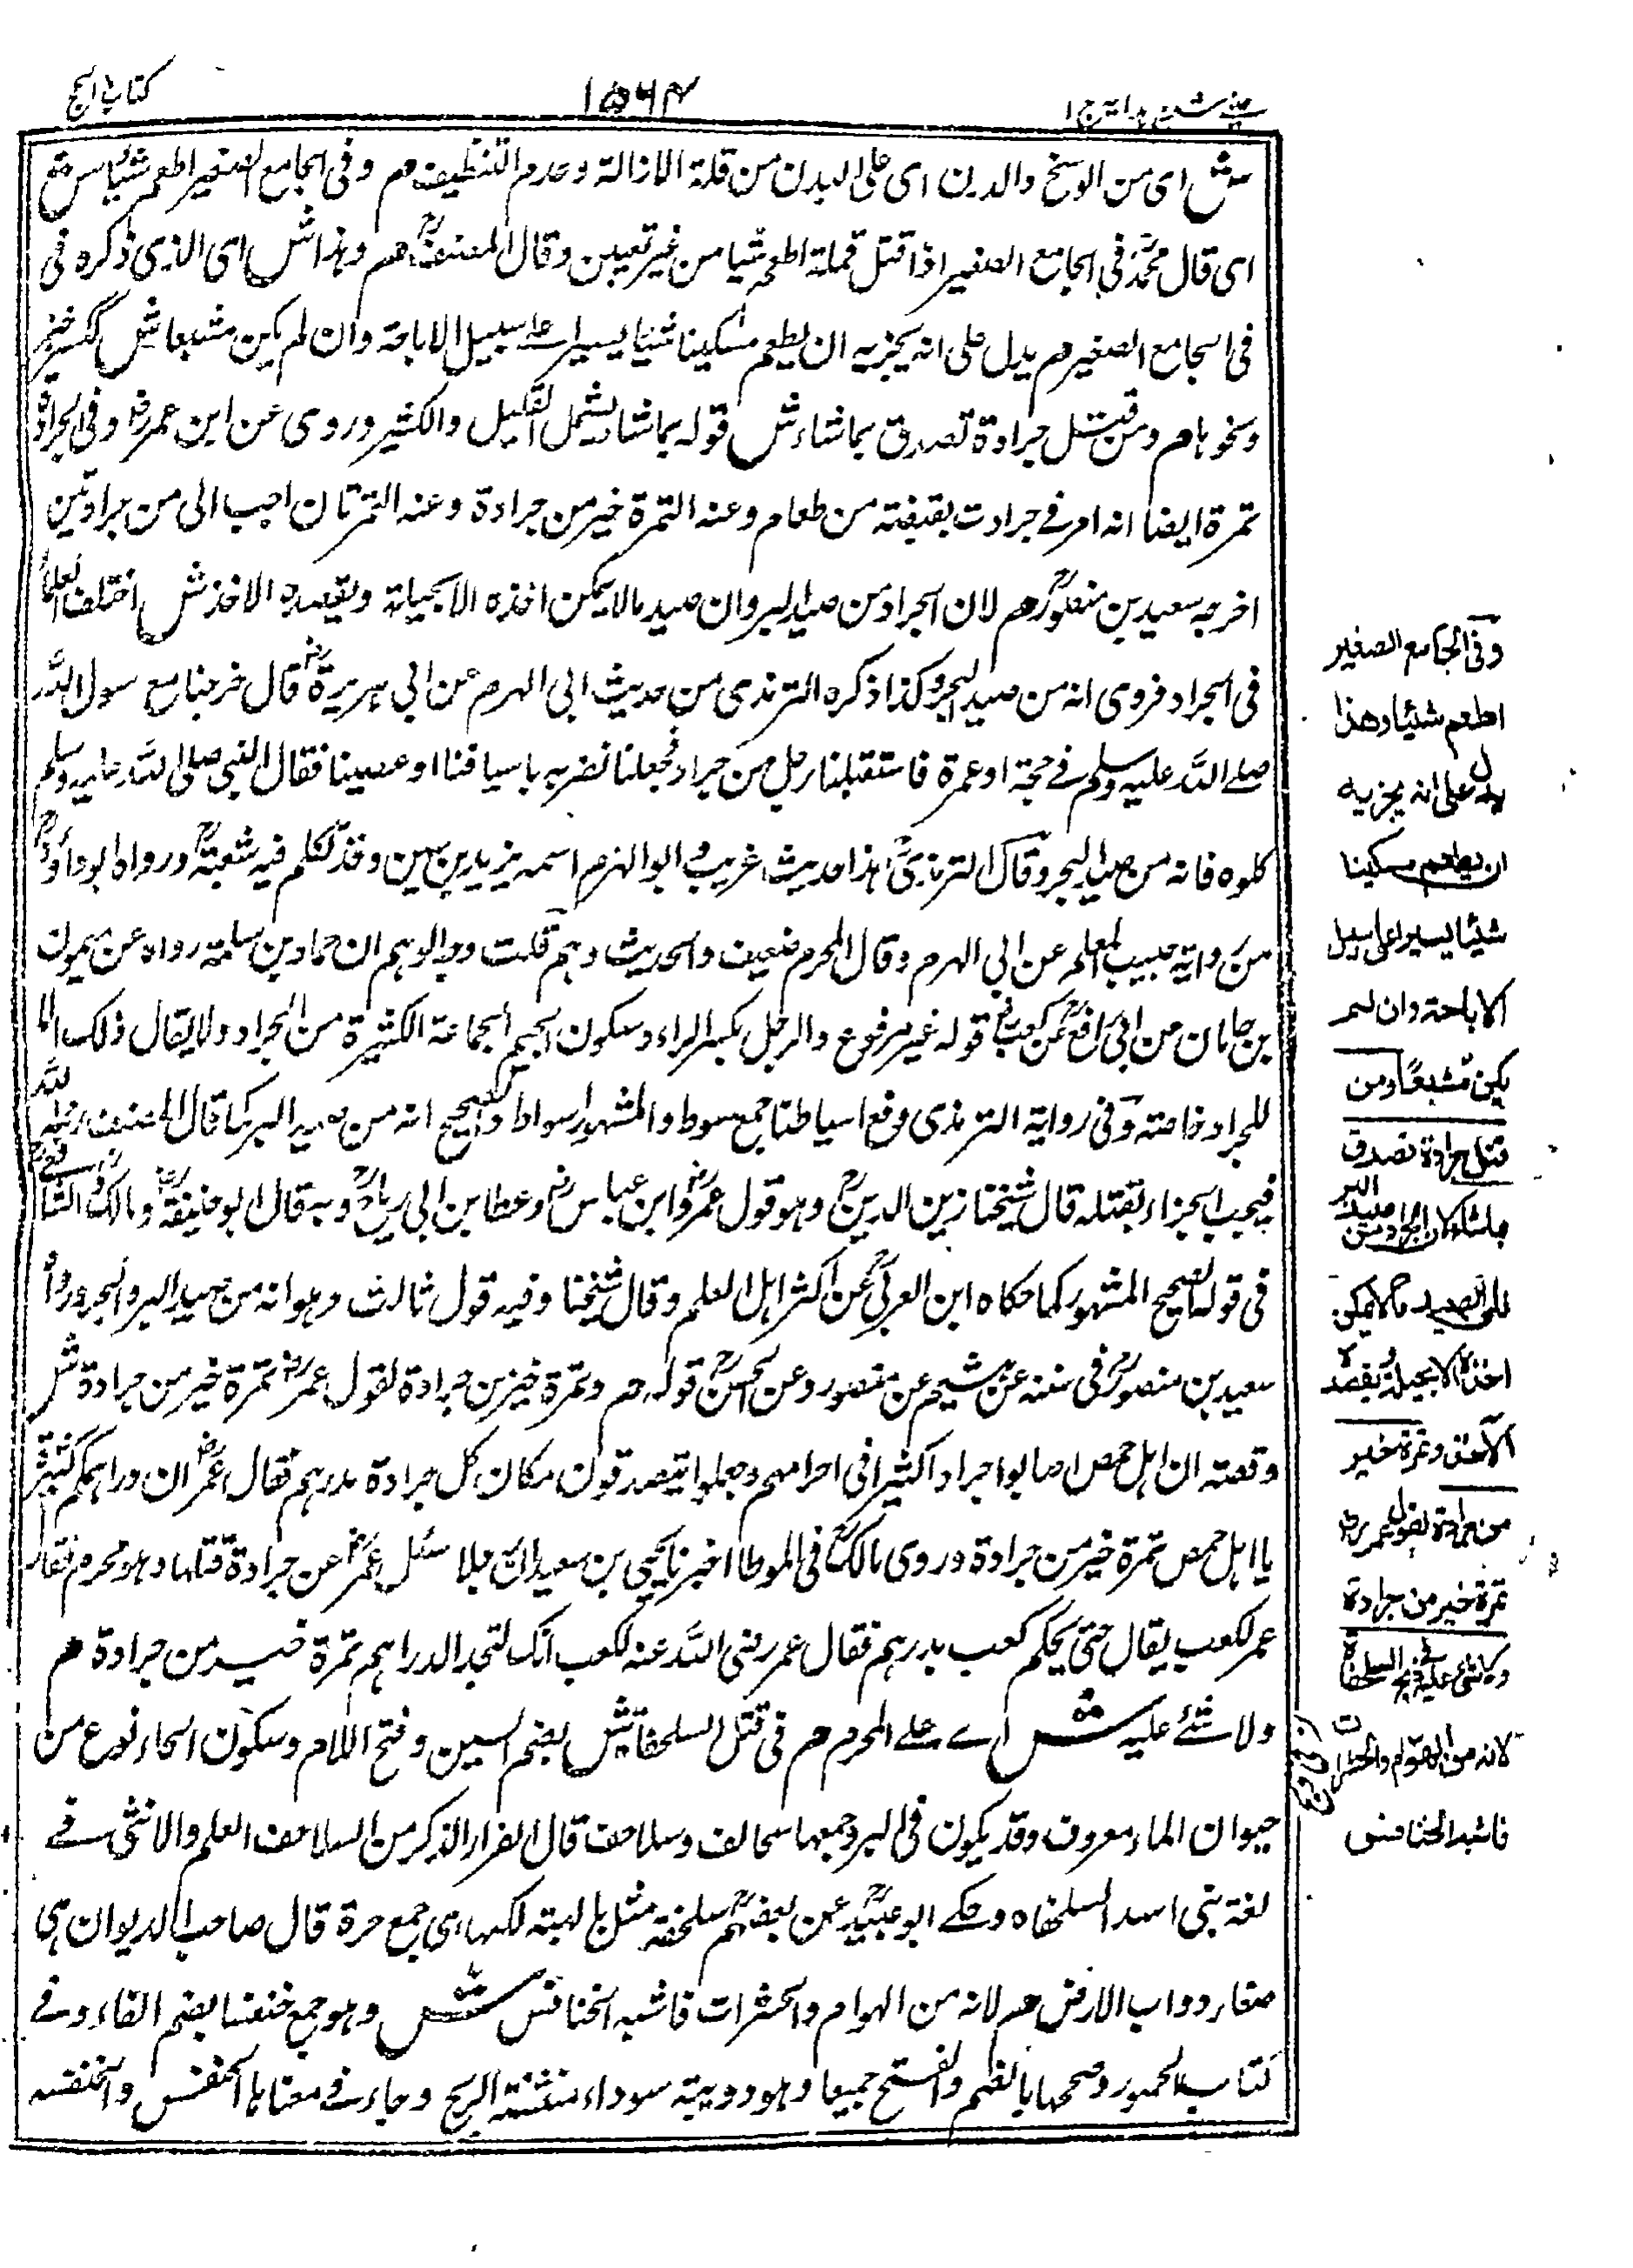 عینی شرح هدایة ج ۱
۱۵۶۴
کتاب الحج
ش ای من الوسخ والدرن ای علی البدن من قلة الازالة وعدم التنظیف م وفی الجامع الصغیر اطعم شیئا ش
ای قال محمدؒ فی الجامع الصغیر اذا قتل قملة اطعم شیا من غیر تعیین وقال المصنفؒ م وهذا ش ای الذی ذکره فی
فی الجامع الصغیر م یدل علی انه یجزیه ان یطعم مسکینا شیئا یسیرا علی سبیل الاباحة وان لم یکن مشبعا ش ککسرة خبز
ونحوها م ومن قتل جرادة تصدق بما شاء ش قوله بما شاء یشمل القلیل والکثیر وروی عن ابن عمرؓ وفی الجرادة
تمرة ایضا انه امر فی جرادت بقبضة من طعام وعنه التمرة خیر من جرادة وعنه التمرتان احب الی من جرادتین
اخرجه سعید بن منصورؒ م لان الجراد من صید البر وان صید مالا یمکن اخذه الا بحیلة ویقصده الاخذ ش اختلف العلماء
فی الجراد فروی انه من صید البحر وکذا ذکره الترمذی من حدیث ابی المهزم عن ابی هریرةؓ قال خرجنا مع رسول الله
صلی الله علیه وسلم فی حجة او عمرة فاستقبلنا رجل من جراد فجعلنا نضربه باسیافنا او عصینا فقال النبی صلی الله علیه وسلم
کلوه فانه من صید البحر وقال الترمذیؒ هذا حدیث غریب وابو المهزم اسمه یزید بن سفین وقد تکلم فیه شعبةؒ ورواه ابو داودؒ
من روایة حبیب المعلم عن ابی المهزم وقال المحرم ضعیف والحدیث وهم قلت وجه الوهم ان حماد بن سلمة رواه عن میمون
بن جابان من ابی رافعؒ عن کعبؓ قوله غیر مرفوع والرجل بکسر الراء وسکون الجیم الجماعة الکثیرة من الجراد ولا یقال ذلک الا
للجراد خاصة وفی روایة الترمذی وقع اسیاطنا جمع سوط والمشهور اسواط والصحیح انه من صید البر کما قال المصنف رحمه الله
فیجب الجزاء بقتله قال شیخنا زین الدینؒ وهو قول عمرؓ وابن عباسؓ وعطا بن ابی رباحؒ وبه قال ابو حنیفةؒ ومالکؒ والشافعیؒ
فی قوله الصحیح المشهور کما حکاه ابن العربیؒ عن اکثر اهل العلم وقال شیخنا وفیه قول ثالث وهو انه من صید البر والبحر رواه
سعید بن منصورؒ فی سننه عن هشیم عن منصور وعن الحسنؒ قوله م وتمرة خیر من جرادة لقول عمرؓ تمرة خیر من جرادة ش
وقصته ان اهل حمص اصابوا جرادا کثیرا فی احرامهم وجعلوا یتصدقون مکان کل جرادة بدرهم فقال عمرؓ ان دراهمکم کثیرة
یا اهل حمص تمرة خیر من جرادة وروی مالکؒ فی الموطا اخبرنا یحیی بن سعید ان رجلا سئل عمرؓ عن جرادة قتلها وهو محرم فقال
عمر لکعب یقال حتی یحکم کعب بدرهم فقال عمر رضی الله عنه لکعب انک لتجد الدراهم تمرة خیر من جرادة م
ولا شئ علیه ش ای علی المحرم م فی قتل السلحفاة ش بضم السین وفتح اللام وسکون الحاء نوع من
حیوان الماء معروف وقد یکون فی البر وجمعها سحالف وسلاحف قال الفراء الذکر من السلاحف العلم والانثی فی
لغة بنی اسد السلحفاه وحکی ابو عبیدؒ عن بعضهم سلحفة مثل بلهنة لکنها ای جمع حرة قال صاحب الدیوان هی
صغار دواب الارض م لانه من الهوام والحشرات فاشبه الخنافس ش وهو جمع خنفسا بضم الفاء وفی
کتاب الجمهور وصححها بالضم والفتح جمیعا وهو دویبة سوداء منتنة الریح وجاء فی معناها الخنفس والخنفسه
وفی الجامع الصغیر
اطعم شیئا وهذا
یدل علی انه یجزیه
ان یطعم مسکینا
شیئا یسیرا علی سبیل
الاباحة وان لم
یکن مشبعًا ومن
قتل جرادة تصدق
بما شاء لان الجراد من صید البر
فان الصید ما لا یمکن
اخذه الا بحیلة ویقصده
الآخذ وتمرة خیر
من جرادة لقول عمر رض
تمرة خیر من جرادة
ولا شئ علیه فی ذبح السلحفاة
لانه من الهوام والحشرات
فاشبه الخنافس